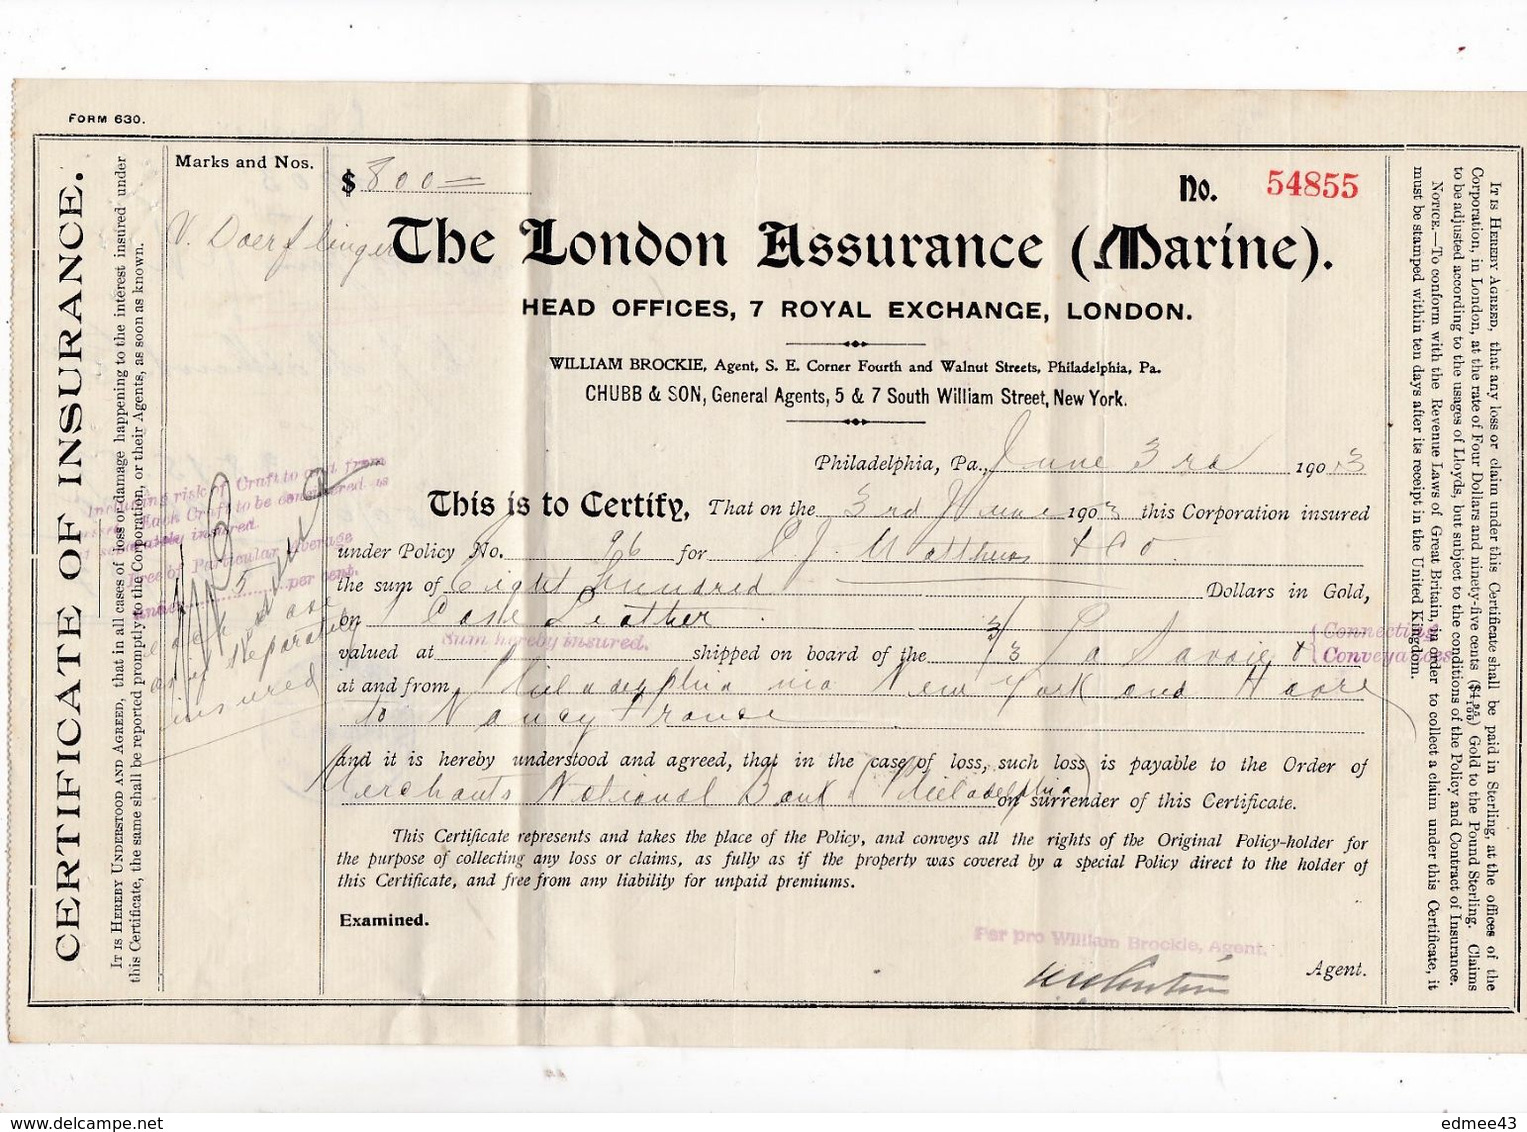 FORM 630.
CERTIFICATE OF INSURANCE.
IT IS HEREBY UNDERSTOOD AND AGREED, that in all cases of loss or damage happening to the interest insured under
this Certificate, the same shall be reported promptly to the Corporation, or their Agents, as soon as known.
Marks and Nos.
V. Doerflinger
Including risk of Craft to and from
Each Craft to be considered as
separately insured.
Free of Particular Average
under 5 per cent.
each case
as if separately
insured
$ 800=
No. 54855
The London Assurance (Marine).
HEAD OFFICES, 7 ROYAL EXCHANGE, LONDON.
WILLIAM BROCKIE, Agent, S. E. Corner Fourth and Walnut Streets, Philadelphia, Pa.
CHUBB & SON, General Agents, 5 & 7 South William Street, New York.
Philadelphia, Pa., June 3rd 1903
This is to Certify, That on the 3rd June 1903 this Corporation insured
under Policy No. 96 for C. J. Matthews & Co.
the sum of Eight Hundred Dollars in Gold,
on 1 Case Leather
valued at Sum hereby insured. shipped on board of the S/S La Savoie & Connecting Conveyances
at and from Philadelphia via New York and Havre
to Nancy France
And it is hereby understood and agreed, that in the case of loss, such loss is payable to the Order of
Merchants National Bank (Philadelphia) on surrender of this Certificate.
This Certificate represents and takes the place of the Policy, and conveys all the rights of the Original Policy-holder for
the purpose of collecting any loss or claims, as fully as if the property was covered by a special Policy direct to the holder of
this Certificate, and free from any liability for unpaid premiums.
Examined.
Per pro William Brockie, Agent.
Agent.
IT IS HEREBY AGREED, that any loss or claim under this Certificate shall be paid in Sterling, at the offices of the
Corporation, in London, at the rate of Four Dollars and ninety-five cents ($4.95/100) Gold to the Pound Sterling. Claims
to be adjusted according to the usages of Lloyds, but subject to the conditions of the Policy and Contract of Insurance.
NOTICE.—To conform with the Revenue Laws of Great Britain, in order to collect a claim under this Certificate, it
must be stamped within ten days after its receipt in the United Kingdom.
www.delcampe.net
edmee43